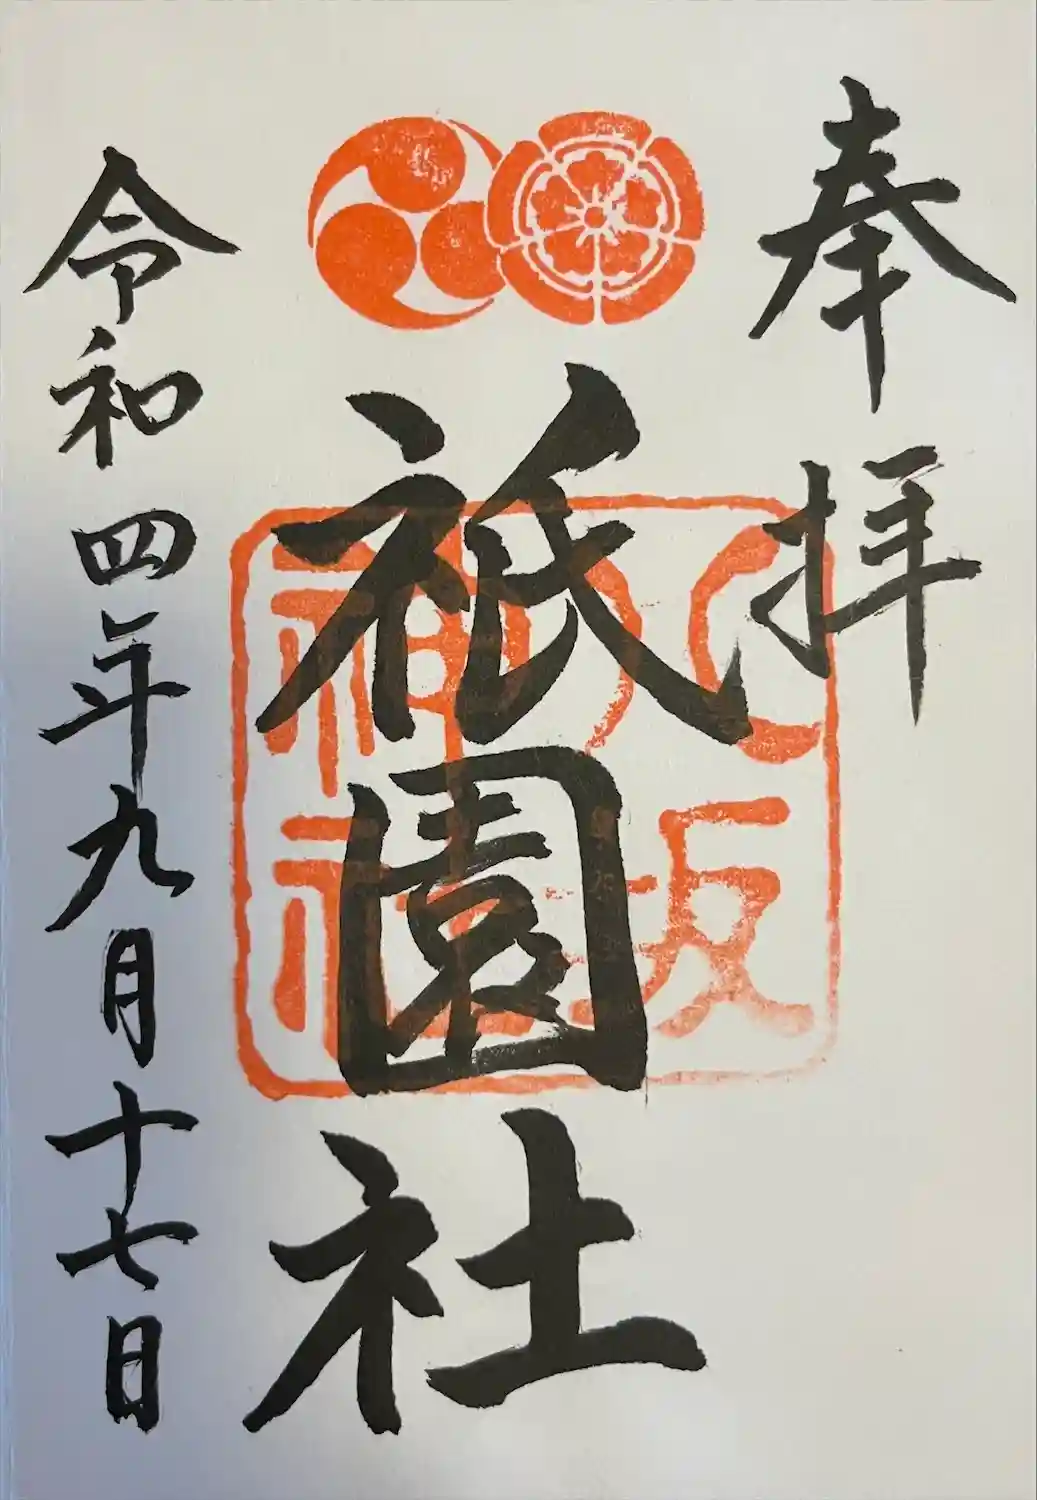 奉拝
祇園社
八坂
神社
令和四年九月十七日